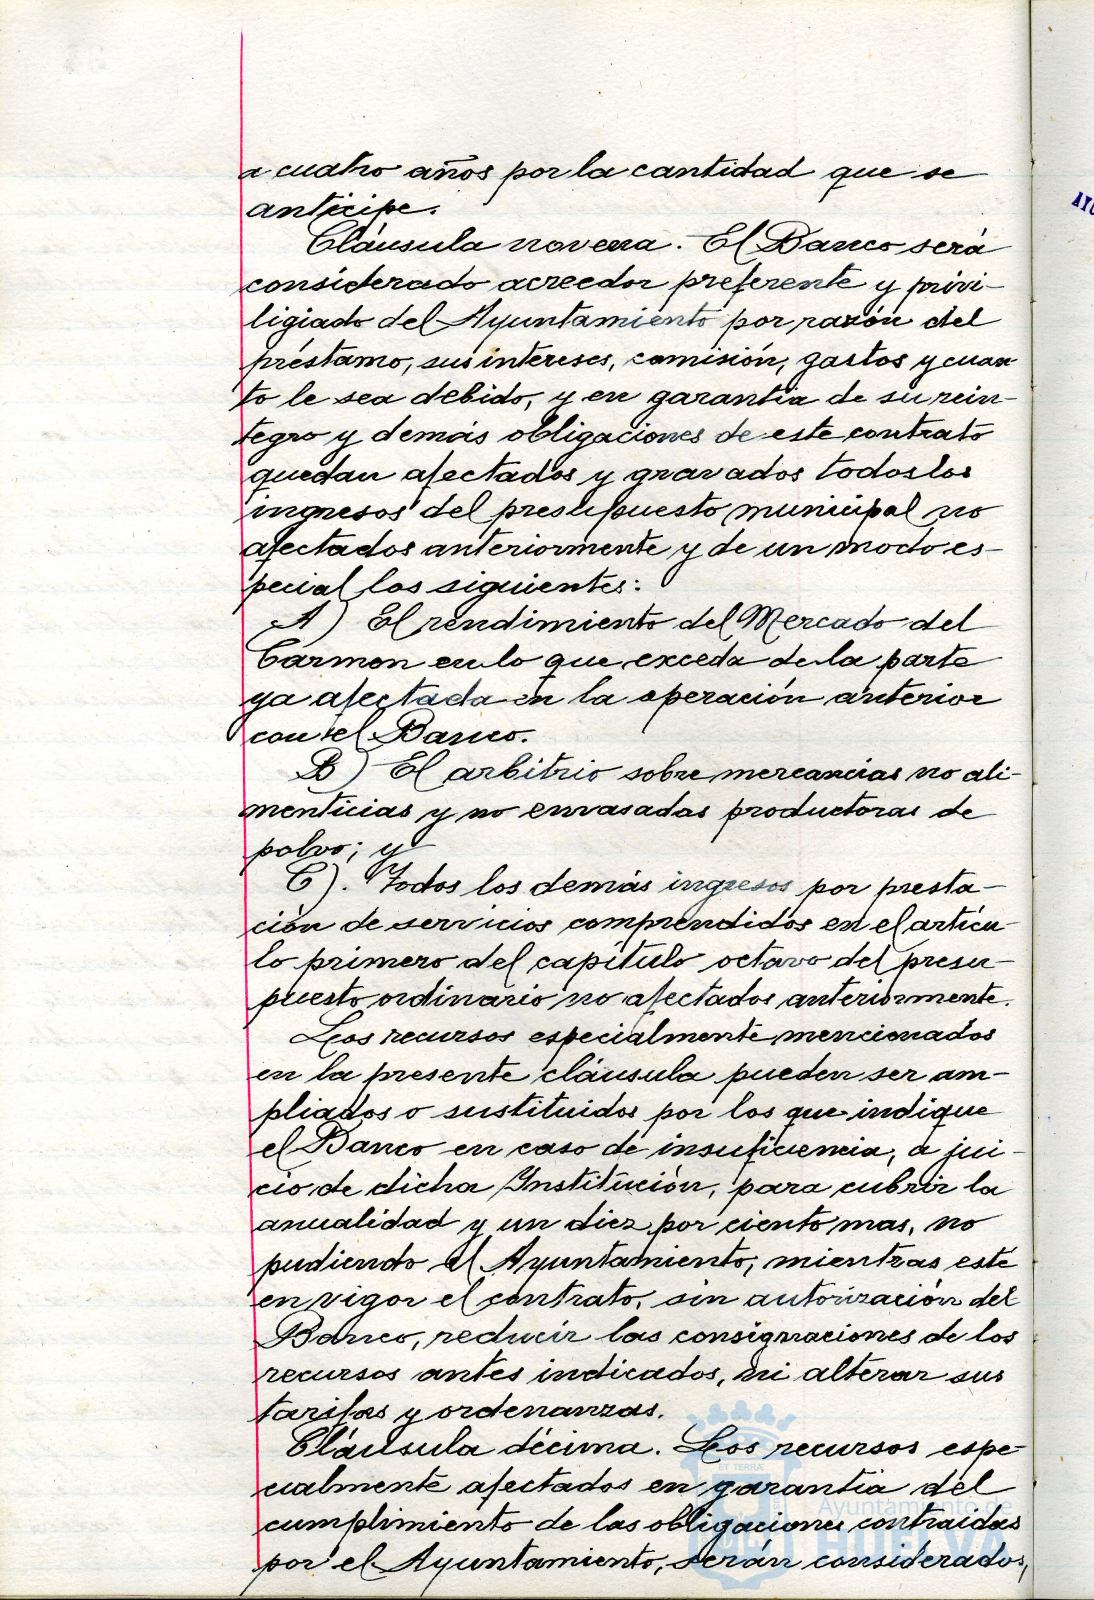 a cuatro años por la cantidad que se
anticipe.
Cláusula novena. El Banco será
considerado acreedor preferente y privi-
ligiado del Ayuntamiento por razón del
préstamo, sus intereses, comisión, gastos y cuan
to le sea debido, y en garantía de su rein-
tegro y demás obligaciones de este contrato
quedan afectados y gravados todos los
ingresos del presupuesto municipal no
afectados anteriormente y de un modo es-
pecial los siguientes:
A) El rendimiento del Mercado del
Carmen en lo que exceda de la parte
ya afectada en la operación anterior
con el Banco.
B) El arbitrio sobre mercancias no ali-
menticias y no envasadas productoras de
polvo; y
C). Todos los demás ingresos por presta-
ción de servicios comprendidos en el artícu-
lo primero del capítulo octavo del presu-
puesto ordinario no afectados anteriormente.
Los recursos especialmente mencionados
en la presente cláusula pueden ser am-
pliados o sustituidos por los que indique
el Banco en caso de insuficiencia, a jui-
cio de dicha Institución, para cubrir la
anualidad y un diez por ciento mas, no
pudiendo el Ayuntamiento, mientras esté
en vigor el contrato, sin autorización del
Banco, reducir las consignaciones de los
recursos antes indicados, ni alterar sus
tarifas y ordenanzas.
Cláusula décima. Los recursos espe-
cialmente afectados en garantía del
cumplimiento de las obligaciones contraidas
por el Ayuntamiento, serán considerados,
AYU
ET TERRÆ
Ayuntamiento de
HUELVA